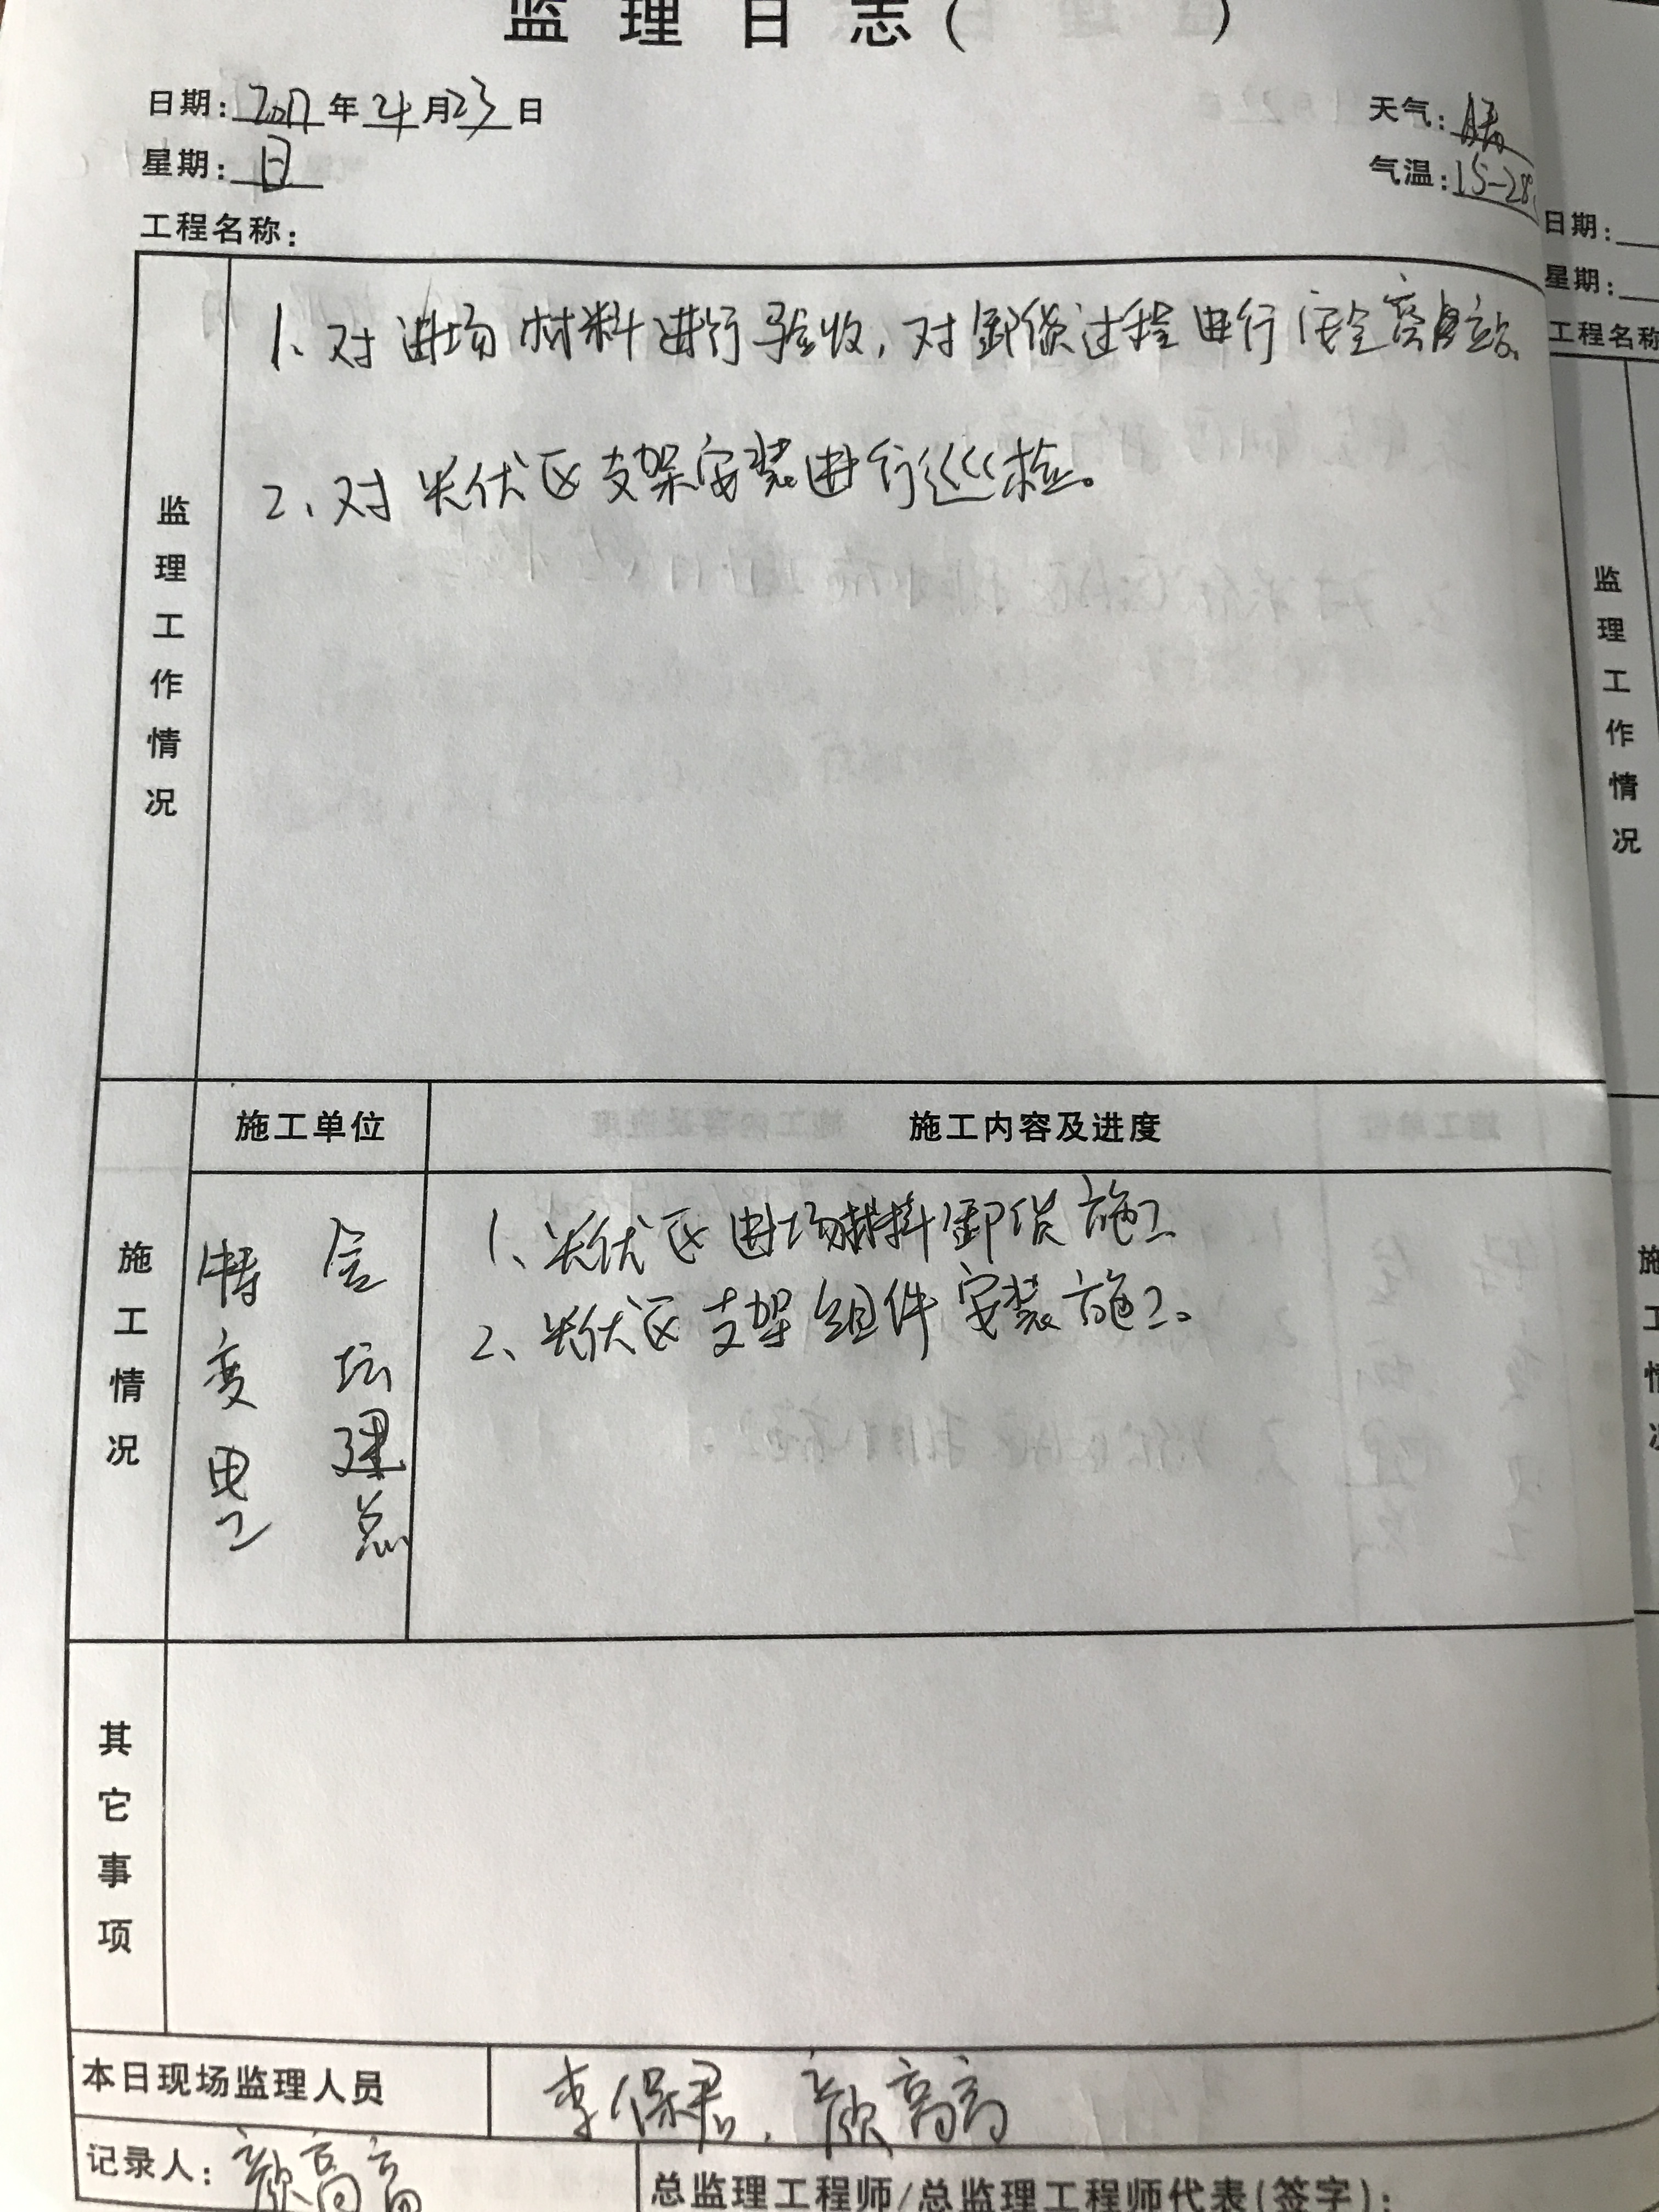 监理日志( )
日期: 2017 年 4 月 23 日
天气: 晴
星期: 日
气温: 15-28
工程名称:
监理工作情况
1、对进场材料进行验收,对卸货过程进行安全旁站。
2、对光伏区支架安装进行巡检。
施工情况
施工单位
施工内容及进度
特变电工
金坛建总
1、光伏区进场材料卸货施工
2、光伏区支架组件安装施工。
其它事项
本日现场监理人员
李保君、颜高高
记录人: 颜高高
总监理工程师/总监理工程师代表(签字):
日期:
星期:
工程名称
监理工作情况
施工情况